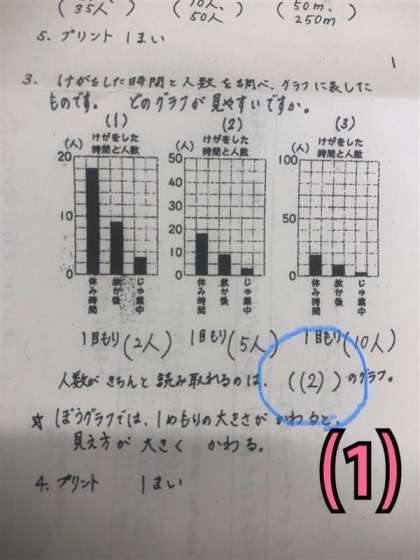 35人 ) ( 10人、50人 ) ( 50m、250m )
5. プリント 1まい
1
3. けがをした時間と人数を調べ、グラフに表した
ものです。 どのグラフが見やすいですか。
(1) (2) (3)
(人) けがをした時間と人数
20
10
0
休み時間 放か後 じゅ業中
(人) けがをした時間と人数
50
40
30
20
10
0
休み時間 放か後 じゅ業中
(人) けがをした時間と人数
100
50
0
休み時間 放か後 じゅ業中
1目もり(2人) 1目もり(5人) 1目もり(10人)
人数がきちんと読み取れるのは、((2))のグラフ。
☆ ぼうグラフでは、1めもりの大きさがかわると、
見え方が大きくかわる。
(1)
4. プリント 1まい